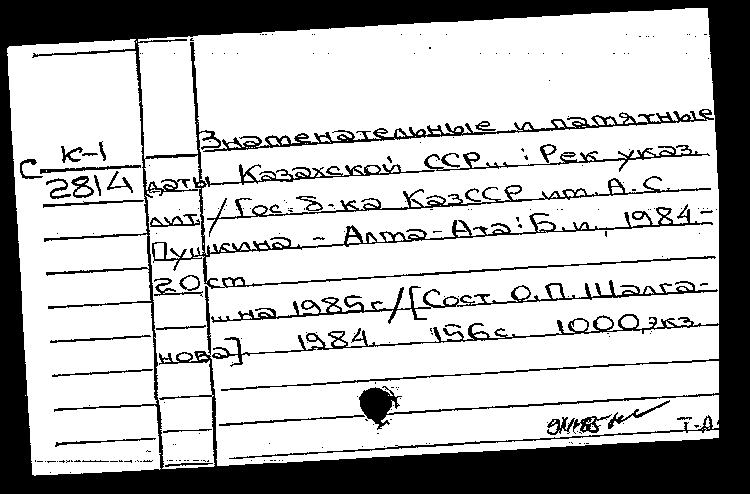 Знаменательные и памятные
С К-1
2814
даты Казахской ССР... : Рек указ.
лит. / Гос. б-ка КазССР им. А.С.
Пушкина. - Алма-Ата: Б.и., 1984.-
20 ст.
...на 1985 г. / [Сост. О.П. Шалга-
нова]. 1984. 156 с. 1000 экз.
Т-А